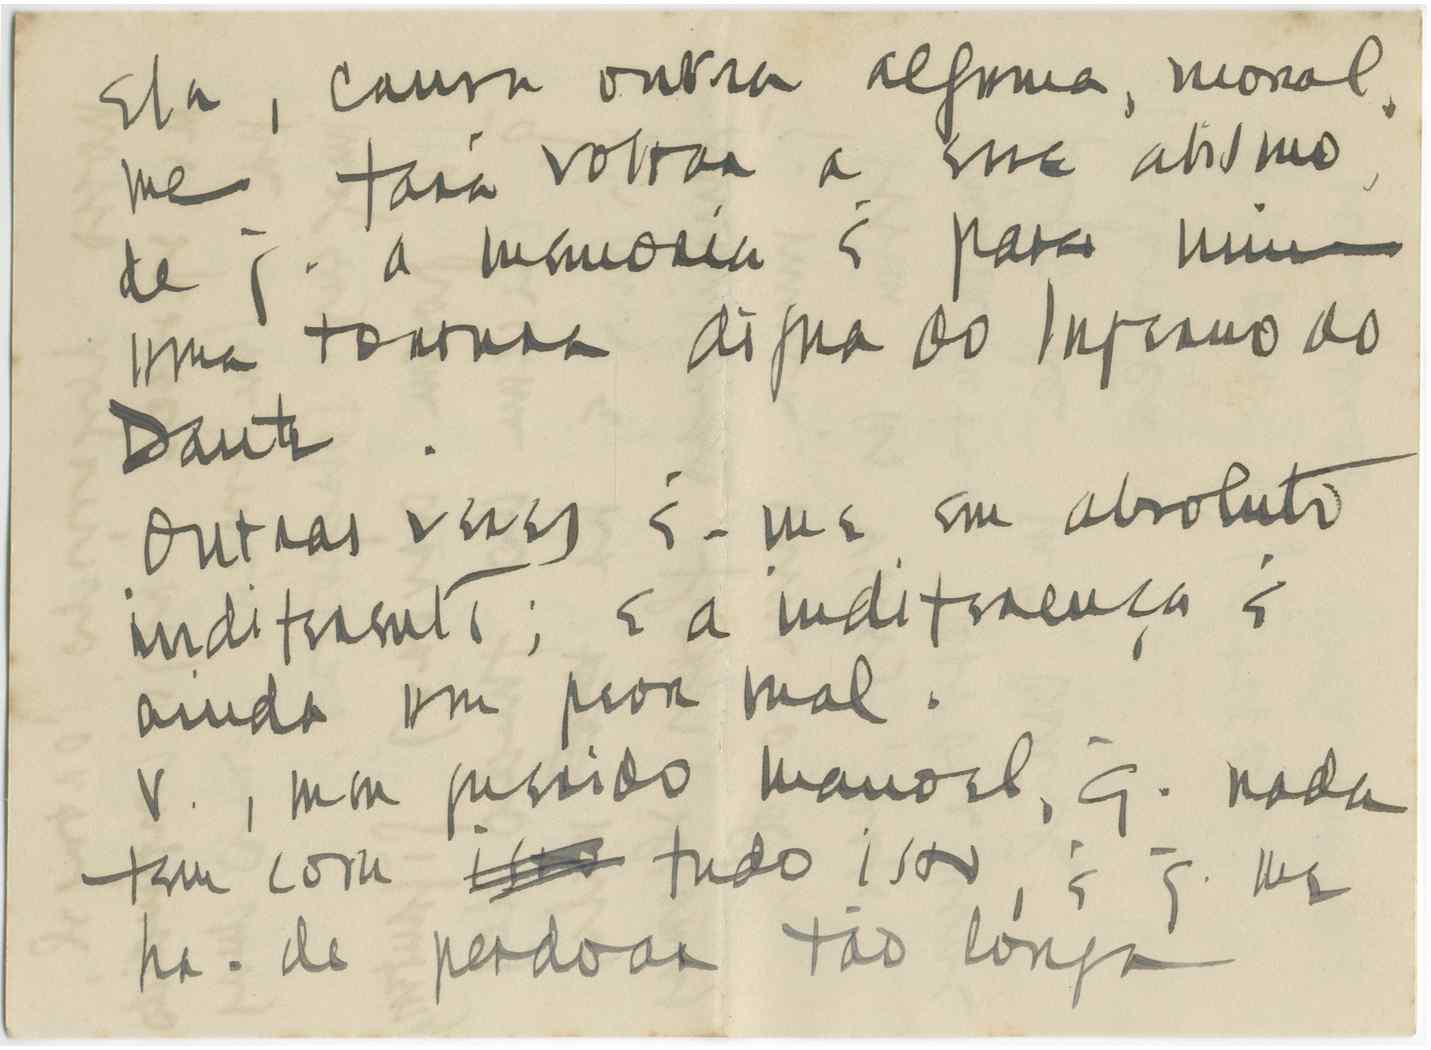 Ela, causa outra alguma, moral,
me fará voltar a esse abismo,
de q̄. a memoria é para mim
uma tortura digna do Inferno do
Dante.
Outras vezes é-me em absoluto
indiferente; e a indiferença é
ainda um peor mal.
V., meu querido Manoel, q̄. nada
tem com isso tudo isso, é q̄. me
ha-de perdoar tão longa